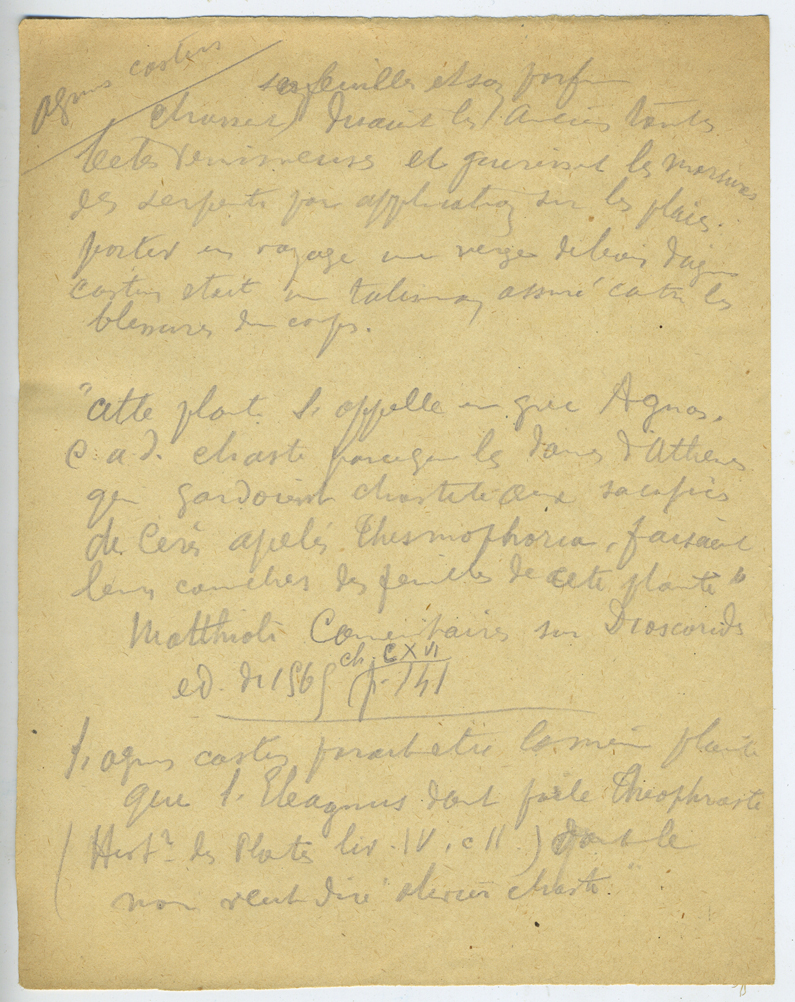 agnus castus
ses feuilles et son parfum
chassent disaient les Anciens toutes
betes venimeuses et guerissent les morsures
des serpents par application sur les plaies.
porter en voyage une verge de bois d'agnus
castus etait un talisman assuré contre les
blessures du corps.
"cette plante s'appelle en grec Agnos,
c. a. d. chaste parce que les dames d'Athenes
qui gardoient chasteté aux sacrifices
de Cerès apelés Thesmophoria, faisaient
leurs couches des feuilles de cete plante"
Matthioli Comentaires sur Dioscorides
ed. de 1565 ch. CXVI p. 141
L'agnus castus parait etre la meme plante
que l'Eleagnus dont parle Theophraste
(Hist.re des Plantes liv. IV, c 11) dont le
nom veut dire olivier chaste.